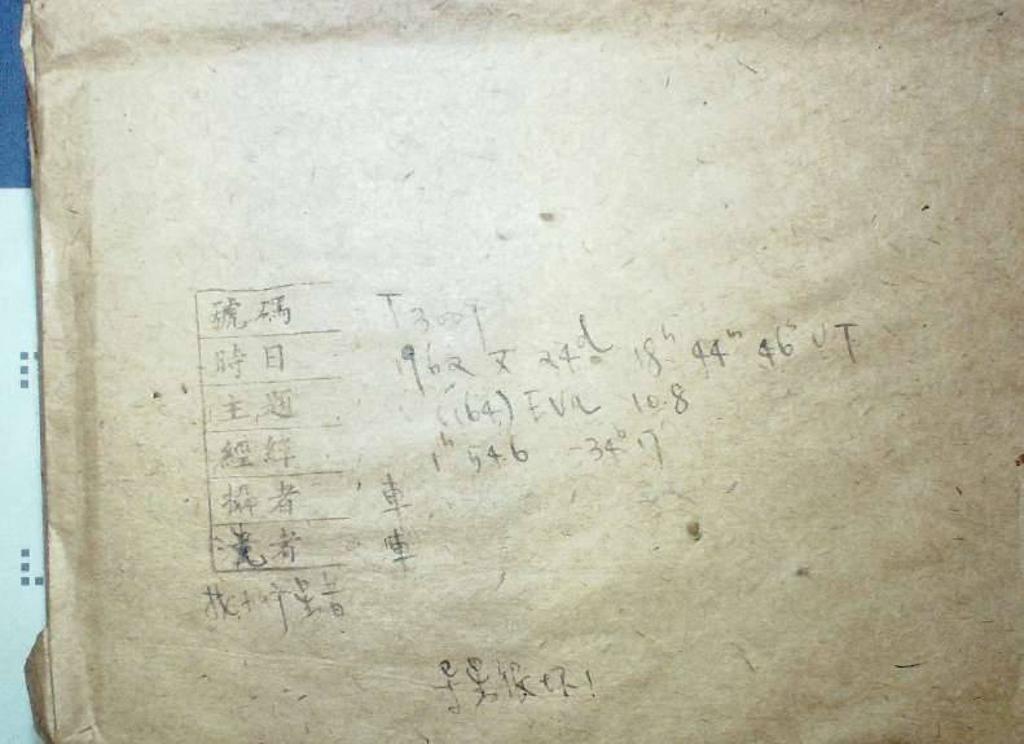 號碼 T3007
時日 1962 X 24d 18h 44m 46s UT
主題 (164) EVA 10.8
經緯 1h 54.6 -34° 17
攝者 車
洗者 車
找小行星者
导星很坏!